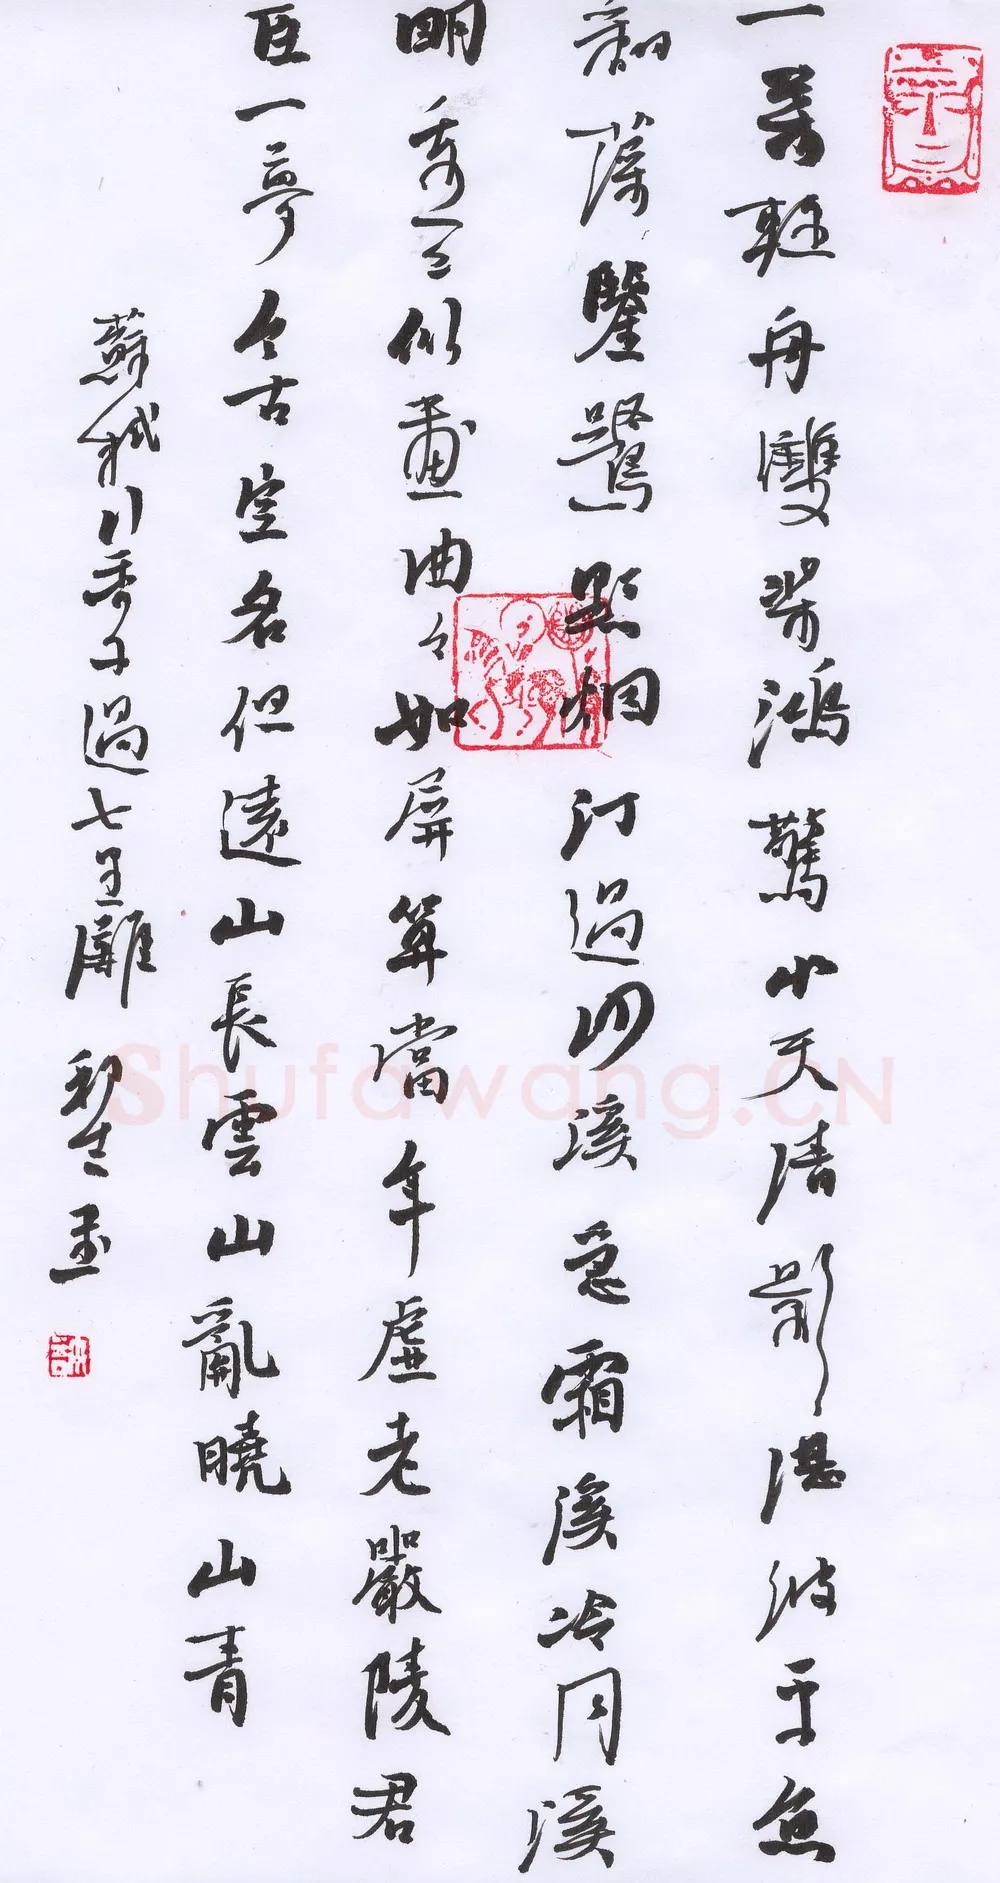 一葉輕舟雙槳鴻驚水天清影湛波平魚
翻藻鑒鷺點烟汀過沙溪急霜溪冷月溪
明重々似畫曲々如屏算當年虛老嚴陵君
臣一夢今古空名但遠山長雲山亂曉山青
蘇軾行香子過七里瀨
Shufawang.CN